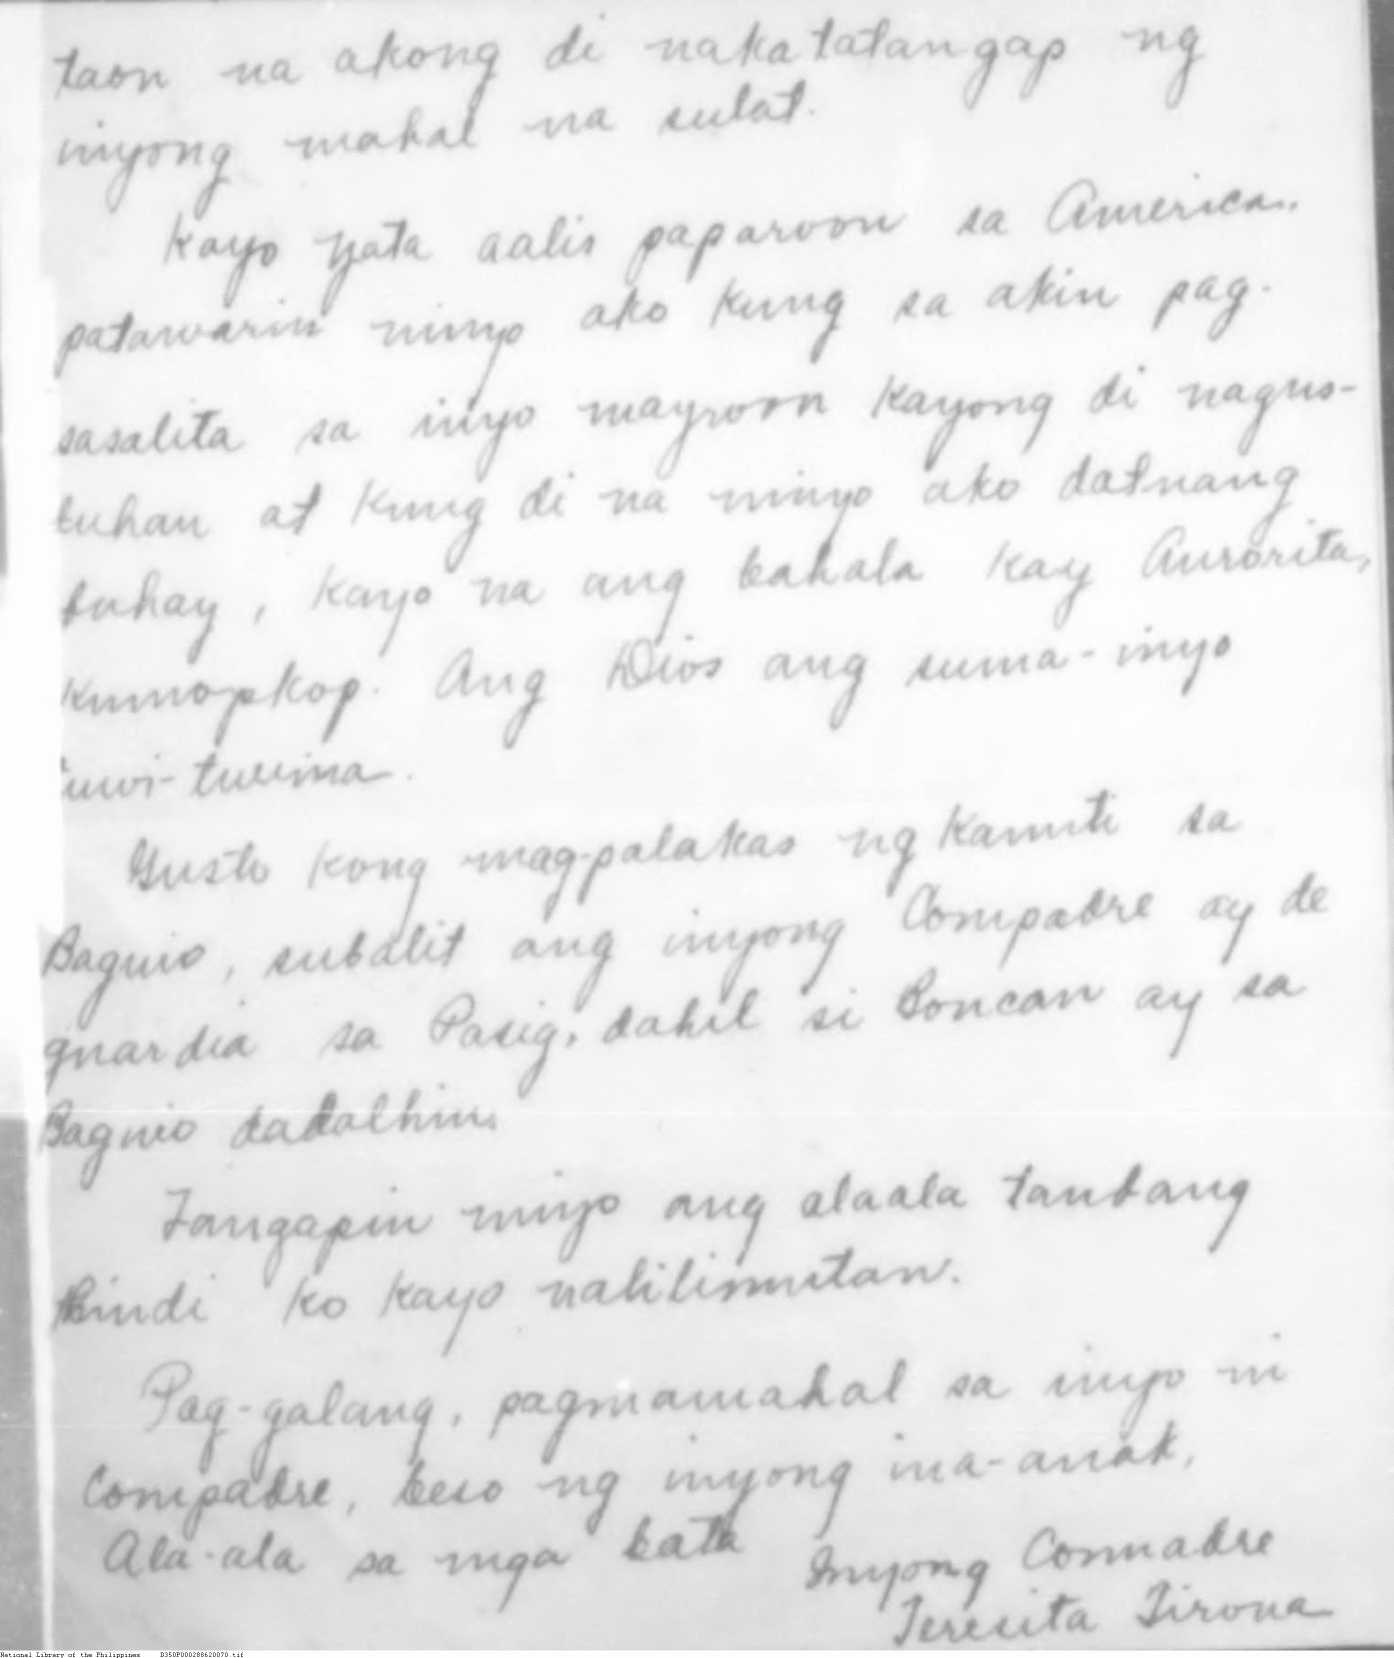 taon na akong di nakatatangap ng
inyong mahal na sulat.
Kayo yata aalis paparoon sa America..
patawarin ninyo ako kung sa akin pag-
sasalita sa inyo mayroon kayong di nagus-
tuhan at kung di na ninyo ako datnang
buhay, kayo na ang bahala kay Aurorita,
kumopkop. Ang Dios ang suma-inyo
tuwi-tuwina.
Gusto kong mag-palakas ng kaunti sa
Baguio, subalit ang inyong Compadre ay de
guardia sa Pasig, dahil si Boncan ay sa
Baguio dadalhin.
Tangapin ninyo ang alaala tandang
hindi ko kayo nalilimutan.
Pag-galang, pagmamahal sa inyo ni
Compadre, beso ng inyong ina-anak,
Ala-ala sa mga bata
Inyong Comadre
Teresita Tirona
National Library of the Philippines B35OP000288620070.tif